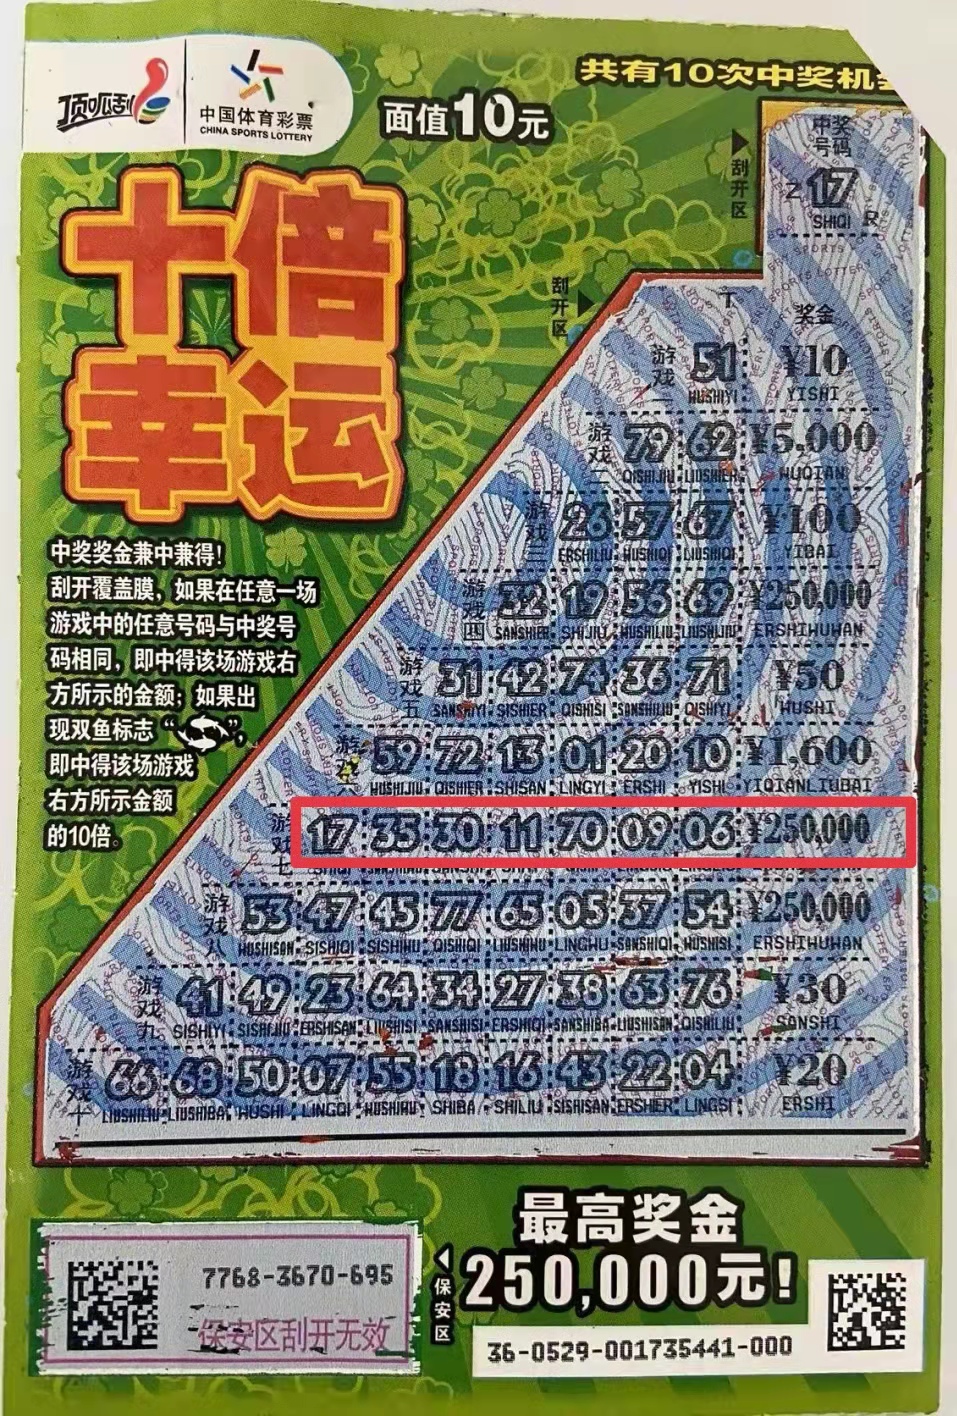 顶呱刮
中国体育彩票
CHINA SPORTS LOTTERY
面值10元
共有10次中奖机
十倍
幸运
刮开区
中奖
号码
17
SHIQI
刮开区
奖金
游戏一 51 ¥10
WUSHIYI YISHI
游戏二 79 62 ¥5,000
QISHIJIU LIUSHIER WUQIAN
游戏三 26 57 67 ¥100
ERSHILIU WUSHIQI LIUSHIQI YIBAI
游戏四 32 19 56 69 ¥250,000
SANSHIER SHIJIU WUSHILIU LIUSHIJIU ERSHIWUWAN
游戏五 31 42 74 36 71 ¥50
SANSHIYI SISHIER QISHISI SANSHILIU QISHIYI WUSHI
游戏六 59 72 13 01 20 10 ¥1,600
WUSHIJIU QISHIER SHISAN LINGYI ERSHI YISHI YIQIANLIUBAI
游戏七 17 35 30 11 70 09 06 ¥250,000
游戏八 53 47 45 77 65 05 37 54 ¥250,000
WUSHISAN SISHIQI SISHIWU QISHIQI LIUSHIWU LINGWU SANSHIQI WUSHISI ERSHIWUWAN
游戏九 41 49 23 64 34 27 38 63 76 ¥30
SISHIYI SISHIJIU ERSHISAN LIUSHISI SANSHISI ERSHIQI SANSHIBA LIUSHISAN QISHILIU SANSHI
游戏十 66 68 50 07 55 18 16 43 22 04 ¥20
LIUSHILIU LIUSHIBA WUSHI LINGQI WUSHIWU SHIBA SHILIU SISHISAN ERSHIER LINGSI ERSHI
中奖奖金兼中兼得！
刮开覆盖膜，如果在任意一场
游戏中的任意号码与中奖号
码相同，即中得该场游戏右
方所示的金额；如果出
现双鱼标志“ ”，
即中得该场游戏
右方所示金额
的10倍。
7768-3670-695
保安区刮开无效
保安区
最高奖金
250,000元！
36-0529-001735441-000